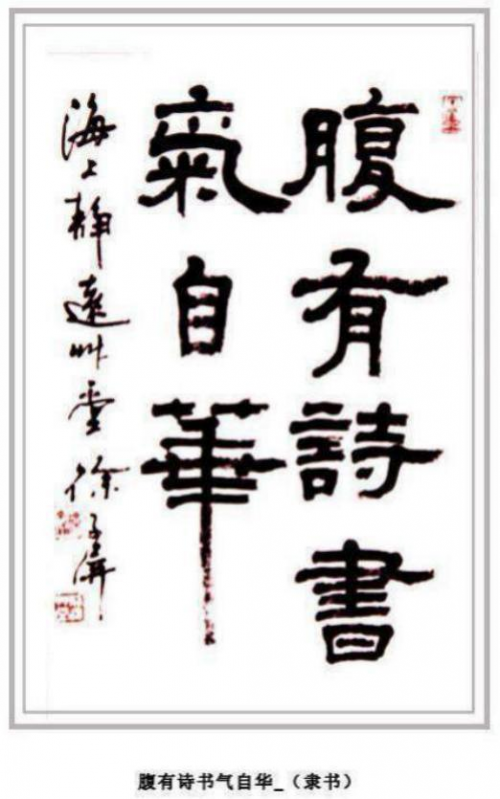 腹有詩書
氣自華
海上靜遠艸堂徐子寿
腹有诗书气自华_（隶书）